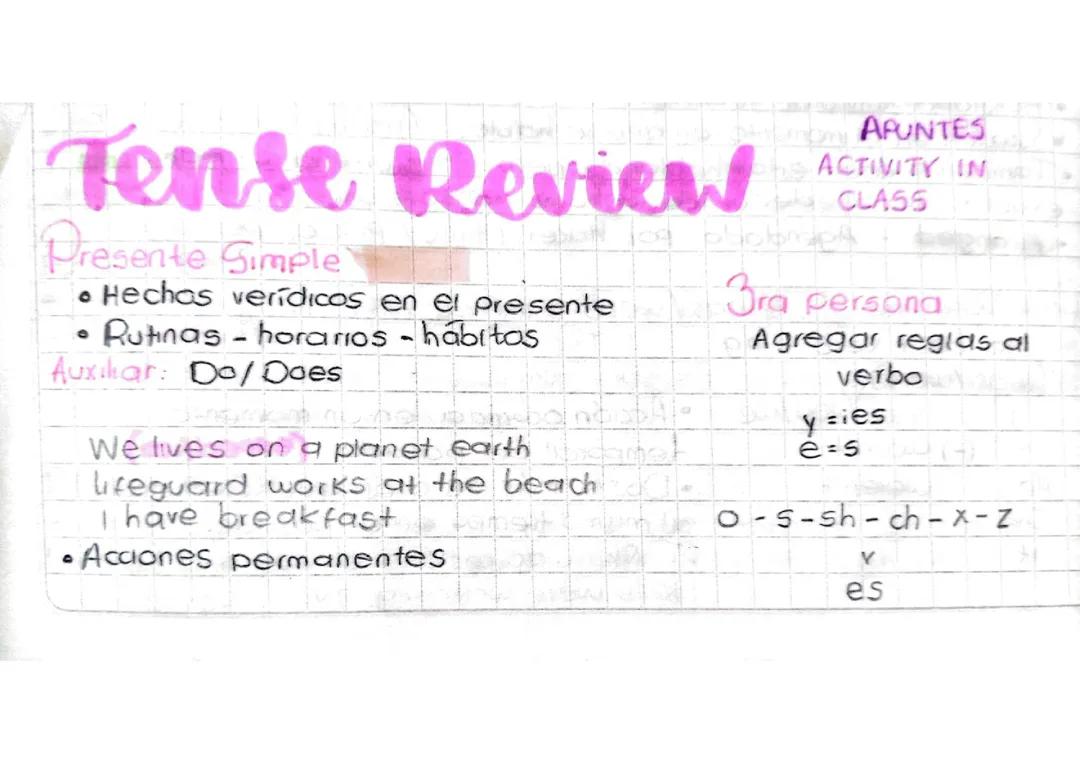 Tense Review
APUNTES
ACTIVITY IN
CLASS
Presente Simple
• Hechos verídicos en el presente
• Rutinas - horarios - hábitos
Auxiliar: Do/Does
We lives on a planet earth
lifeguard works at the beach
I have breakfast
• Acciones permanentes
3ra persona
Agregar reglas al
verbo
y = ies
e = s
O - s - sh - ch - x - z
es